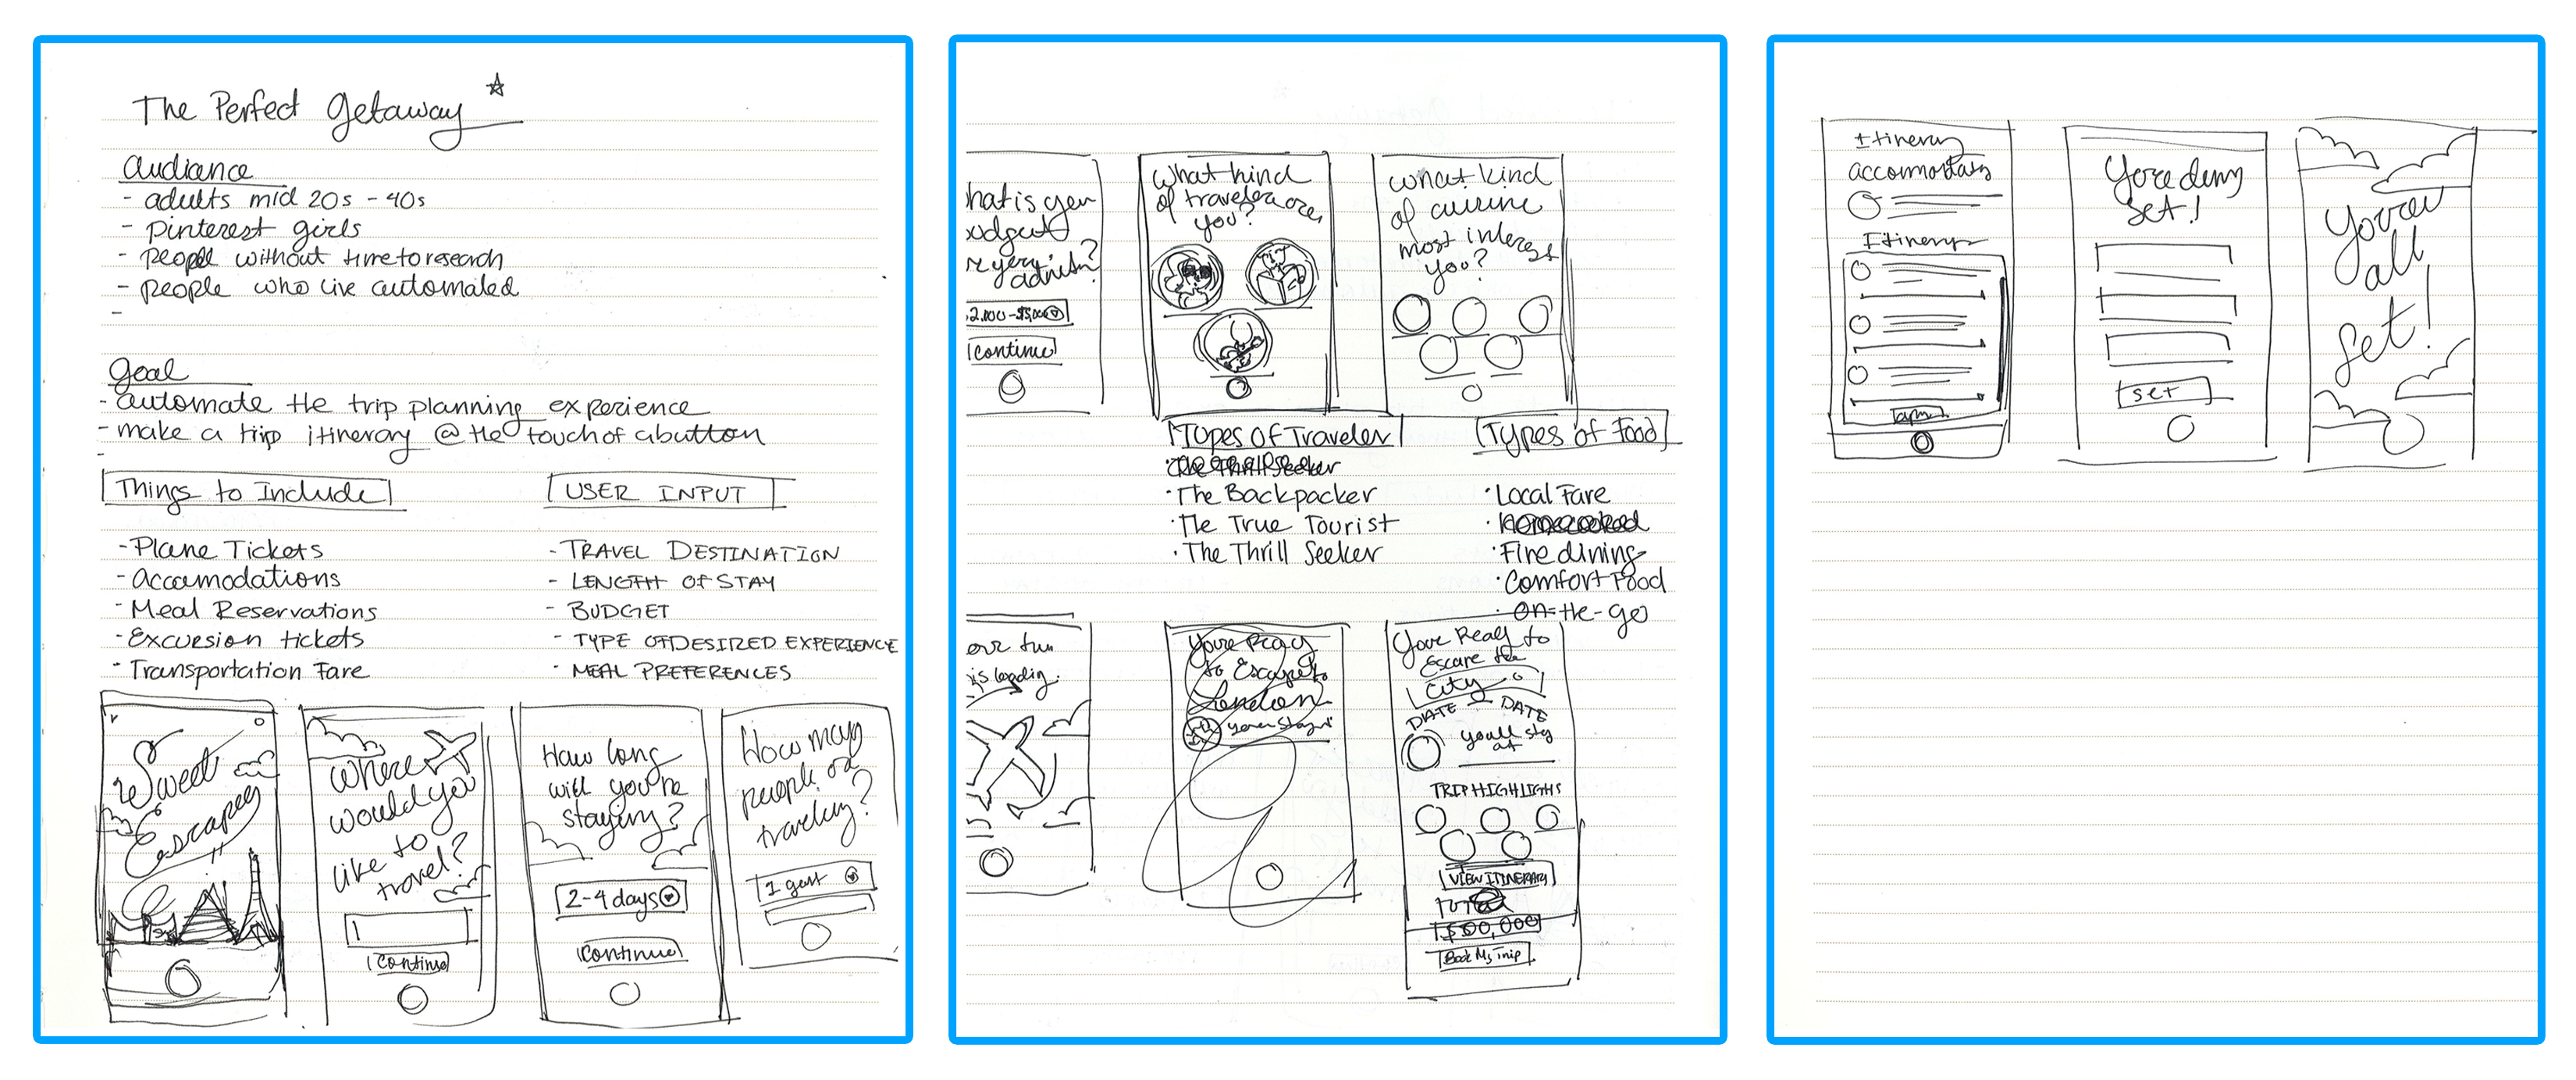 The Perfect Getaway
Audiance
- adults mid 20s - 40s
- pinterest girls
- people without time to research
- people who live automated
-
Goal
- automate the trip planning experience
- make a trip itinerary @ the touch of a button
-
Things to Include
- Plane Tickets
- Accomodations
- Meal Reservations
- Excursion tickets
- Transportation Fare
USER INPUT
- TRAVEL DESTINATION
- LENGTH OF STAY
- BUDGET
- TYPE OF DESIRED EXPERIENCE
- MEAL PREFERENCES
Sweet
Escapes
Where
would you
like to
travel?
Continue
How long
will you be
staying?
2-4 days
Continue
How many
people are
traveling?
1 guest
hat is your
udget
?
2,000-$5,000
Continue
What kind
of traveler are
you?
What kind
of cuisine
most interests
you?
Types of Traveler
The Thrill Seeker
· The Backpacker
· The True Tourist
· The Thrill Seeker
Types of Food
· Local Fare
· Homecooked
· Fine dining
· Comfort Food
· On-the-go
is loading.
You're Ready
to Escape to
London
You're Ready to
Escape the
City
DATE - DATE
you'll stay
at
TRIP HIGHLIGHS
VIEW ITINERARY
Total
Book My Trip
Itinerary
Itinerary
set!
set
You're
all
set!